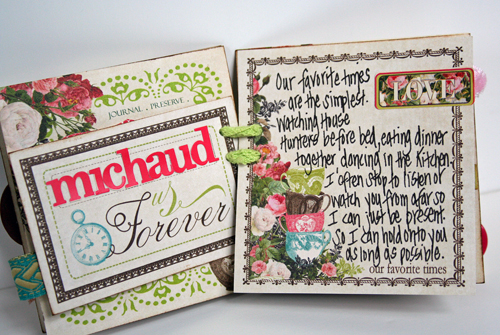 JOURNAL . PRESERVE .
michaud
us
Forever
LOVE
Our favorite times
are the simplest.
Watching House
Hunters before bed, eating dinner
together dancing in the kitchen.
I often stop to listen or
watch you from afar so
I can just be present.
So I can hold onto you
as long as possible.
our favorite times